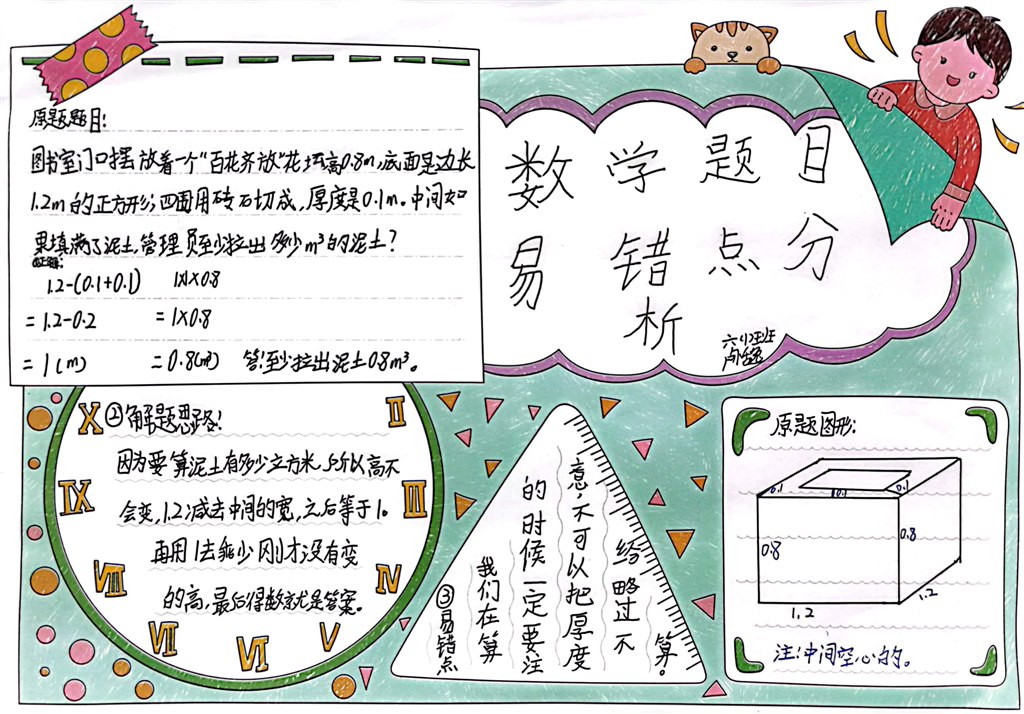 原题题目:
图书室门口摆放着一个"百花齐放"花坛高0.8m,底面是边长
1.2m的正方形,四围用砖石切成,厚度是0.1m。中间如
果填满了泥土,管理员至少拉出多少m³的泥土?
1.2-(0.1+0.1) 1×1×0.8
=1.2-0.2 =1×0.8
=1(m) =0.8(m³) 答:至少拉出泥土0.8m³。
数学题目
易错点分
析
②解题思路:
因为要算泥土有多少立方米,所以高不
会变,1.2减去中间的宽,之后等于1。
再用1去乘少刚才没有变
的高,最后得数就是答案。
X
II
IX
III
VIII
IV
VII
VI
V
③易错点
我们在算
的时候一定要注
意,不可以把厚度
给略过不
算。
原题图形:
0.1
0.1
0.1
0.8
0.8
1.2
1.2
注:中间空心的。